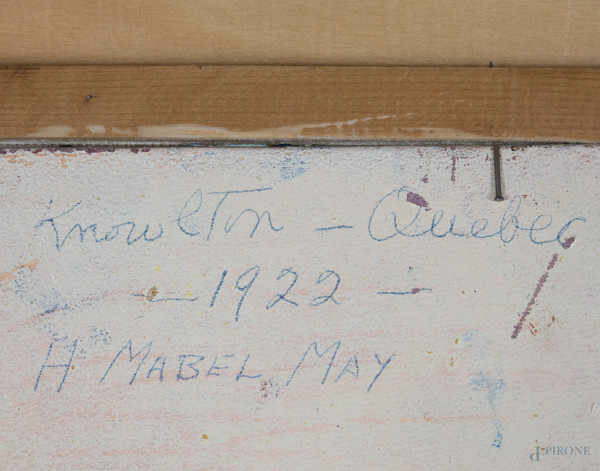 Knowlton - Quebec
- 1922 -
H MABEL MAY
PIRONE